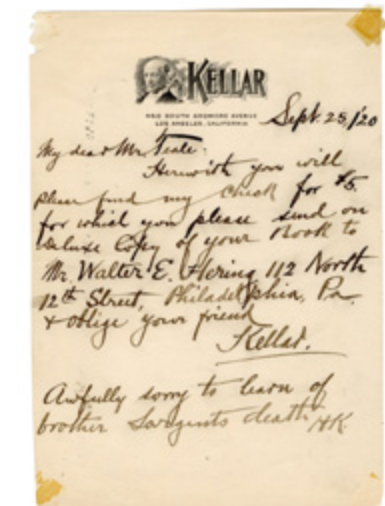 KELLAR
SOUTH ARDMORE AVENUE
LOS ANGELES, CALIFORNIA
Sept. 25/20
My dear Mr. Teale.
Herewith you will
please find my check for $5.
for which you please send on
deluxe Copy of your Book to
Mr. Walter E. Hering 112 North
12th Street, Philadelphia, Pa.
& oblige your friend
Kellar.
Awfully sorry to learn of
brother Sargents death HK.